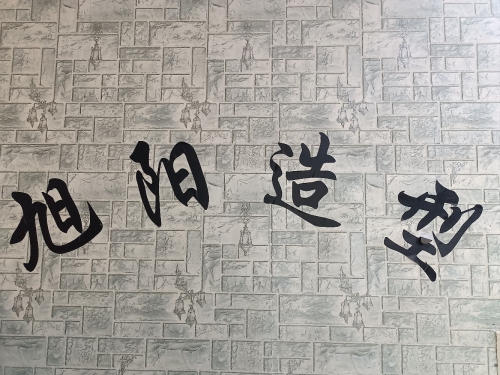 旭阳造型